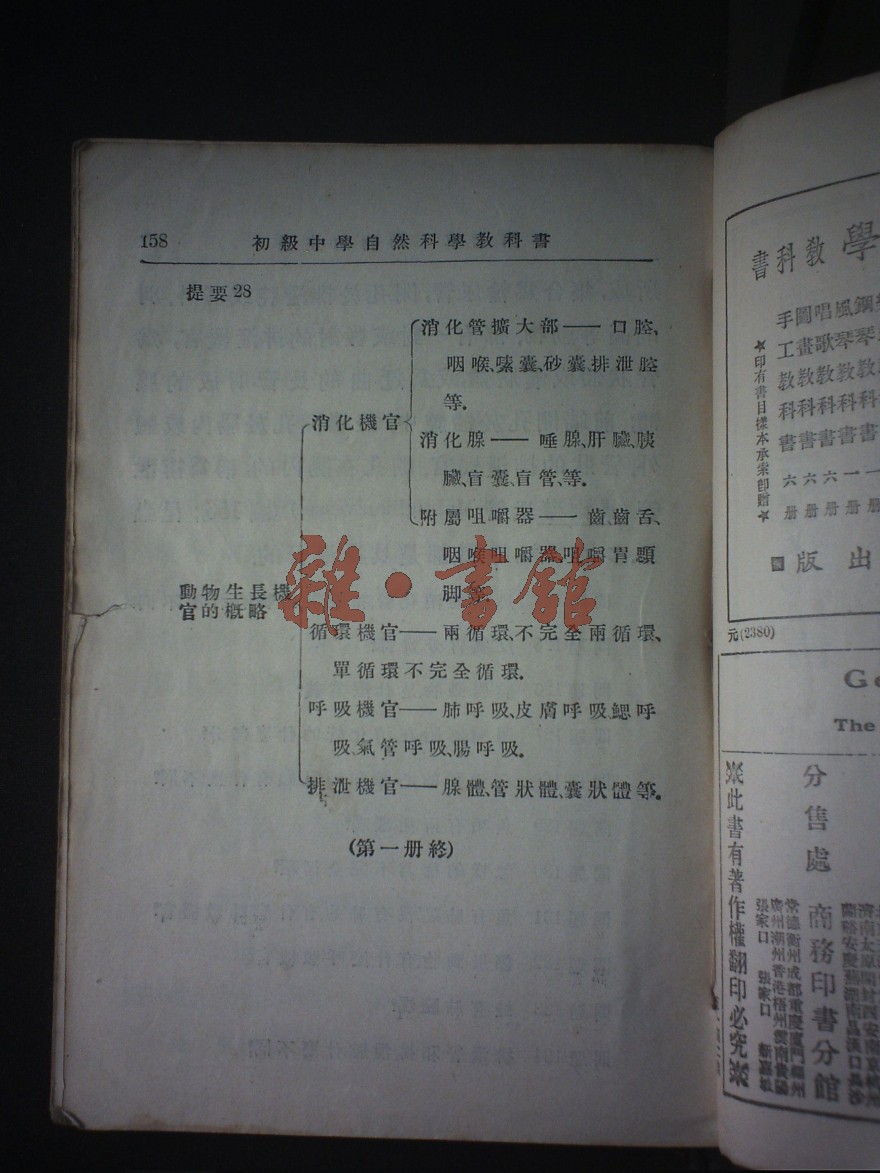 158
初級中學自然科學教科書
提要28
消化管擴大部——口腔、
咽喉、嗉囊、砂囊、排泄腔
等.
消化機官
消化腺——唾腺、肝臟、胰
臟、盲囊、盲管、等.
附屬咀嚼器——齒、齒舌、
咽喉咀嚼器、咀嚼胃、顎
脚等.
動物生長機
官的概略
循環機官——兩循環、不完全兩循環、
單循環不完全循環.
呼吸機官——肺呼吸、皮膚呼吸、鰓呼
吸、氣管呼吸、腸呼吸.
排泄機官——腺體、管狀體、囊狀體等.
(第一册終)
雜·書館
學教科書
手工教科書 六册
圖畫教科書 六册
唱歌教科書 六册
風琴教科書 一册
鋼琴教科書 一册
☆印有書目樣本承索卽贈☆
出版
元(2380)
The
分售處
商務印書分館
此書有著作權翻印必究